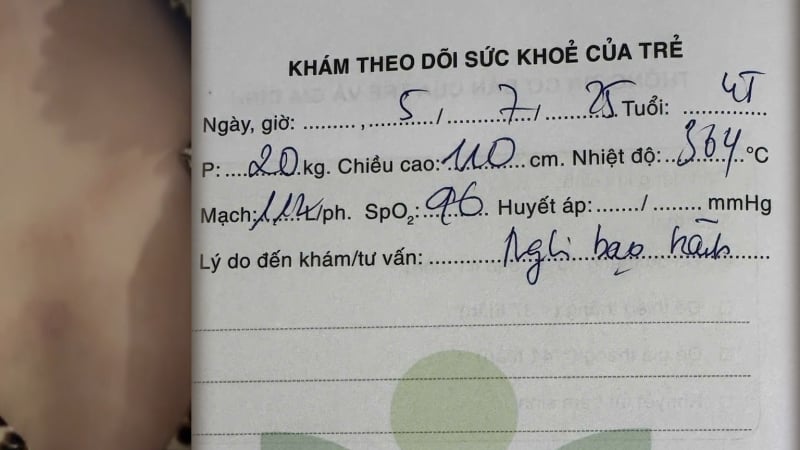 KHÁM THEO DÕI SỨC KHOẺ CỦA TRẺ
Ngày, giờ: ........,.....5...../.....7...../.....25 Tuổi: ..4T..
P: ....20.kg. Chiều cao: 110 cm. Nhiệt độ: 364 °C
Mạch: 112 l/ph. SpO₂: 96 Huyết áp: ......./ ........ mmHg
Lý do đến khám/tư vấn: Nghi bạo hành